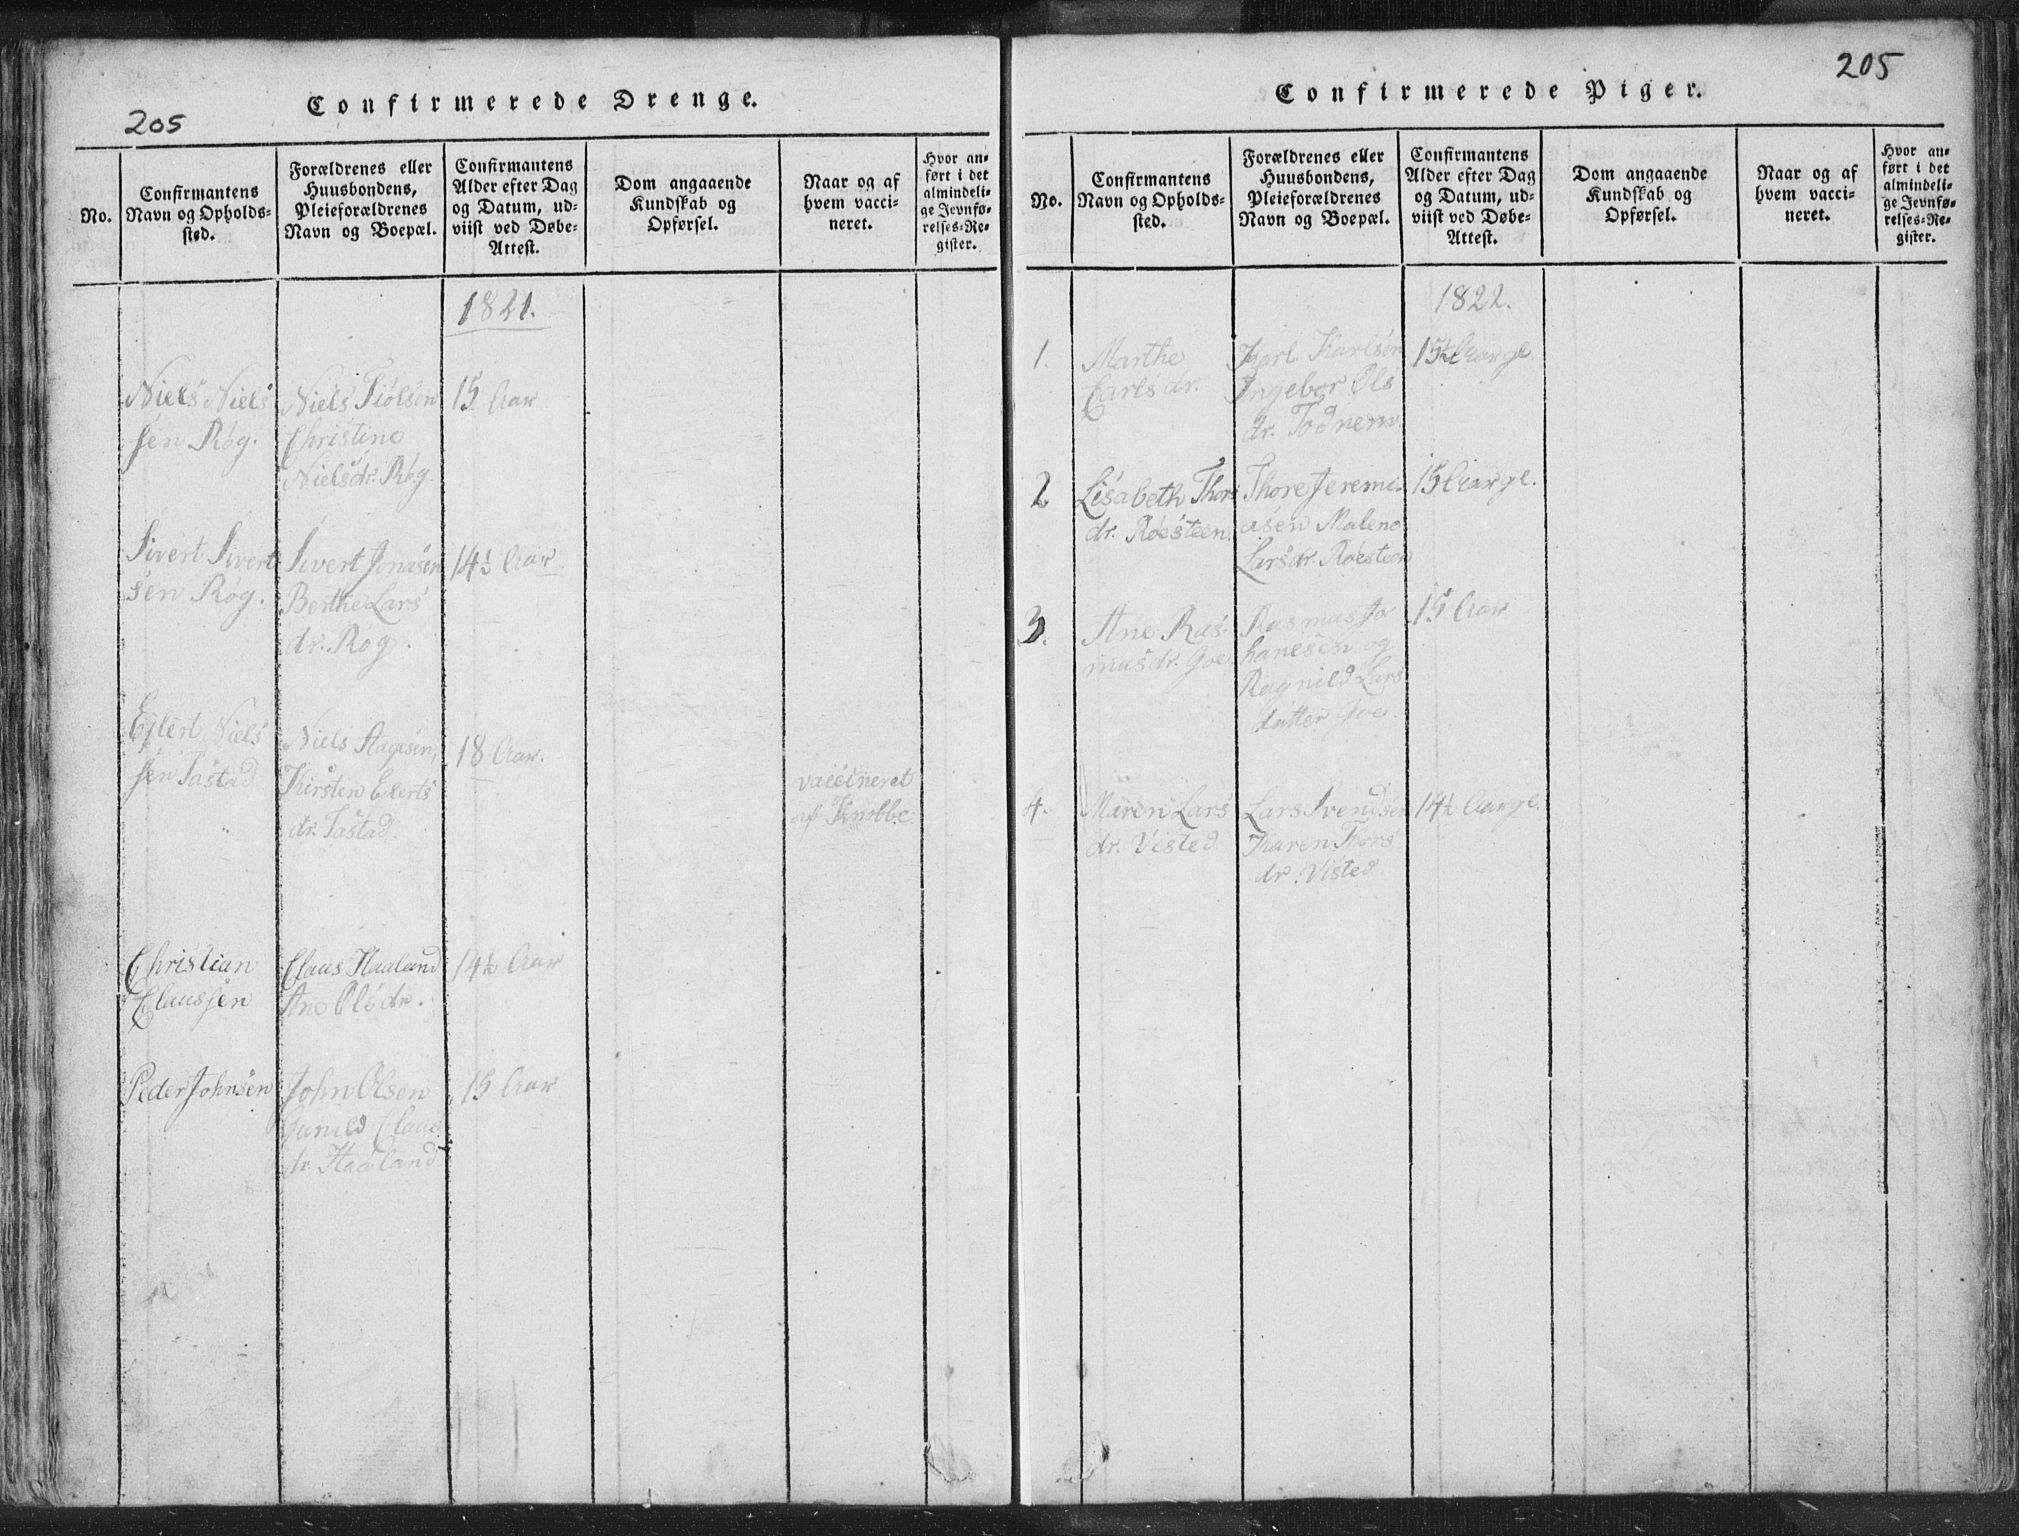 Confirmerede Drenge.
205
No.
Confirmantens
Navn og Opholds-
sted.
Forældrenes eller
Huusbondens,
Pleieforældrenes
Navn og Boepæl.
Confirmantens
Alder efter Dag
og Datum, ud-
viist ved Døbe-
Attest.
Dom angaaende
Kundskab og
Opførsel.
Naar og af
hvem vacci-
neret.
Hvor an-
ført i det
almindeli-
ge Jevnfø-
relses-Re-
gister.
1821.
Niels Niels
sen Røg.
Niels Tiølsen
Christine
Nielsdr. Røg.
15 Aar
Sivert Sivert
sen Røg.
Sivert Jonasen
Berthe Lars
dr. Røg.
14½ Aar
Eylert Niels
sen Tastad
Niels Aagesen,
Kirsten Elerts
dr. Tastad.
18 Aar.
vaccineret
af Knobbe.
Christian
Claussen
Claus Haaland
Ane Olsdr.
14½ Aar
Peder Johnsen
John Olsen
Gunild Claus
dr. Haaland
15 Aar
Confirmerede Piger.
205
No.
Confirmantens
Navn og Opholds-
sted.
Forældrenes eller
Huusbondens,
Pleieforældrenes
Navn og Boepæl.
Confirmantens
Alder efter Dag
og Datum, ud-
viist ved Døbe-
Attest.
Dom angaaende
Kundskab og
Opførsel.
Naar og af
hvem vacci-
neret.
Hvor an-
ført i det
almindeli-
ge Jevnfø-
relses-Re-
gister.
1822.
1.
Marthe
Carlsdr.
Karl Karlsen
Ingebor Ols
dr. Todnem.
15½ Aar gl.
2
Lisabeth Thors
dr. Røesteen.
Thore Jeremi-
asen Malene
Larsdr. Røesteen
15 Aar gl.
3.
Ane Ras-
musdr. Goe
Rasmus Jo
hanesen og
Ragnild Lars
datter Goe.
15 Aar
4.
Maren Lars
dr. Visted
Lars Svendsen
Karen Thors
dr. Visted.
14½ Aar gl.